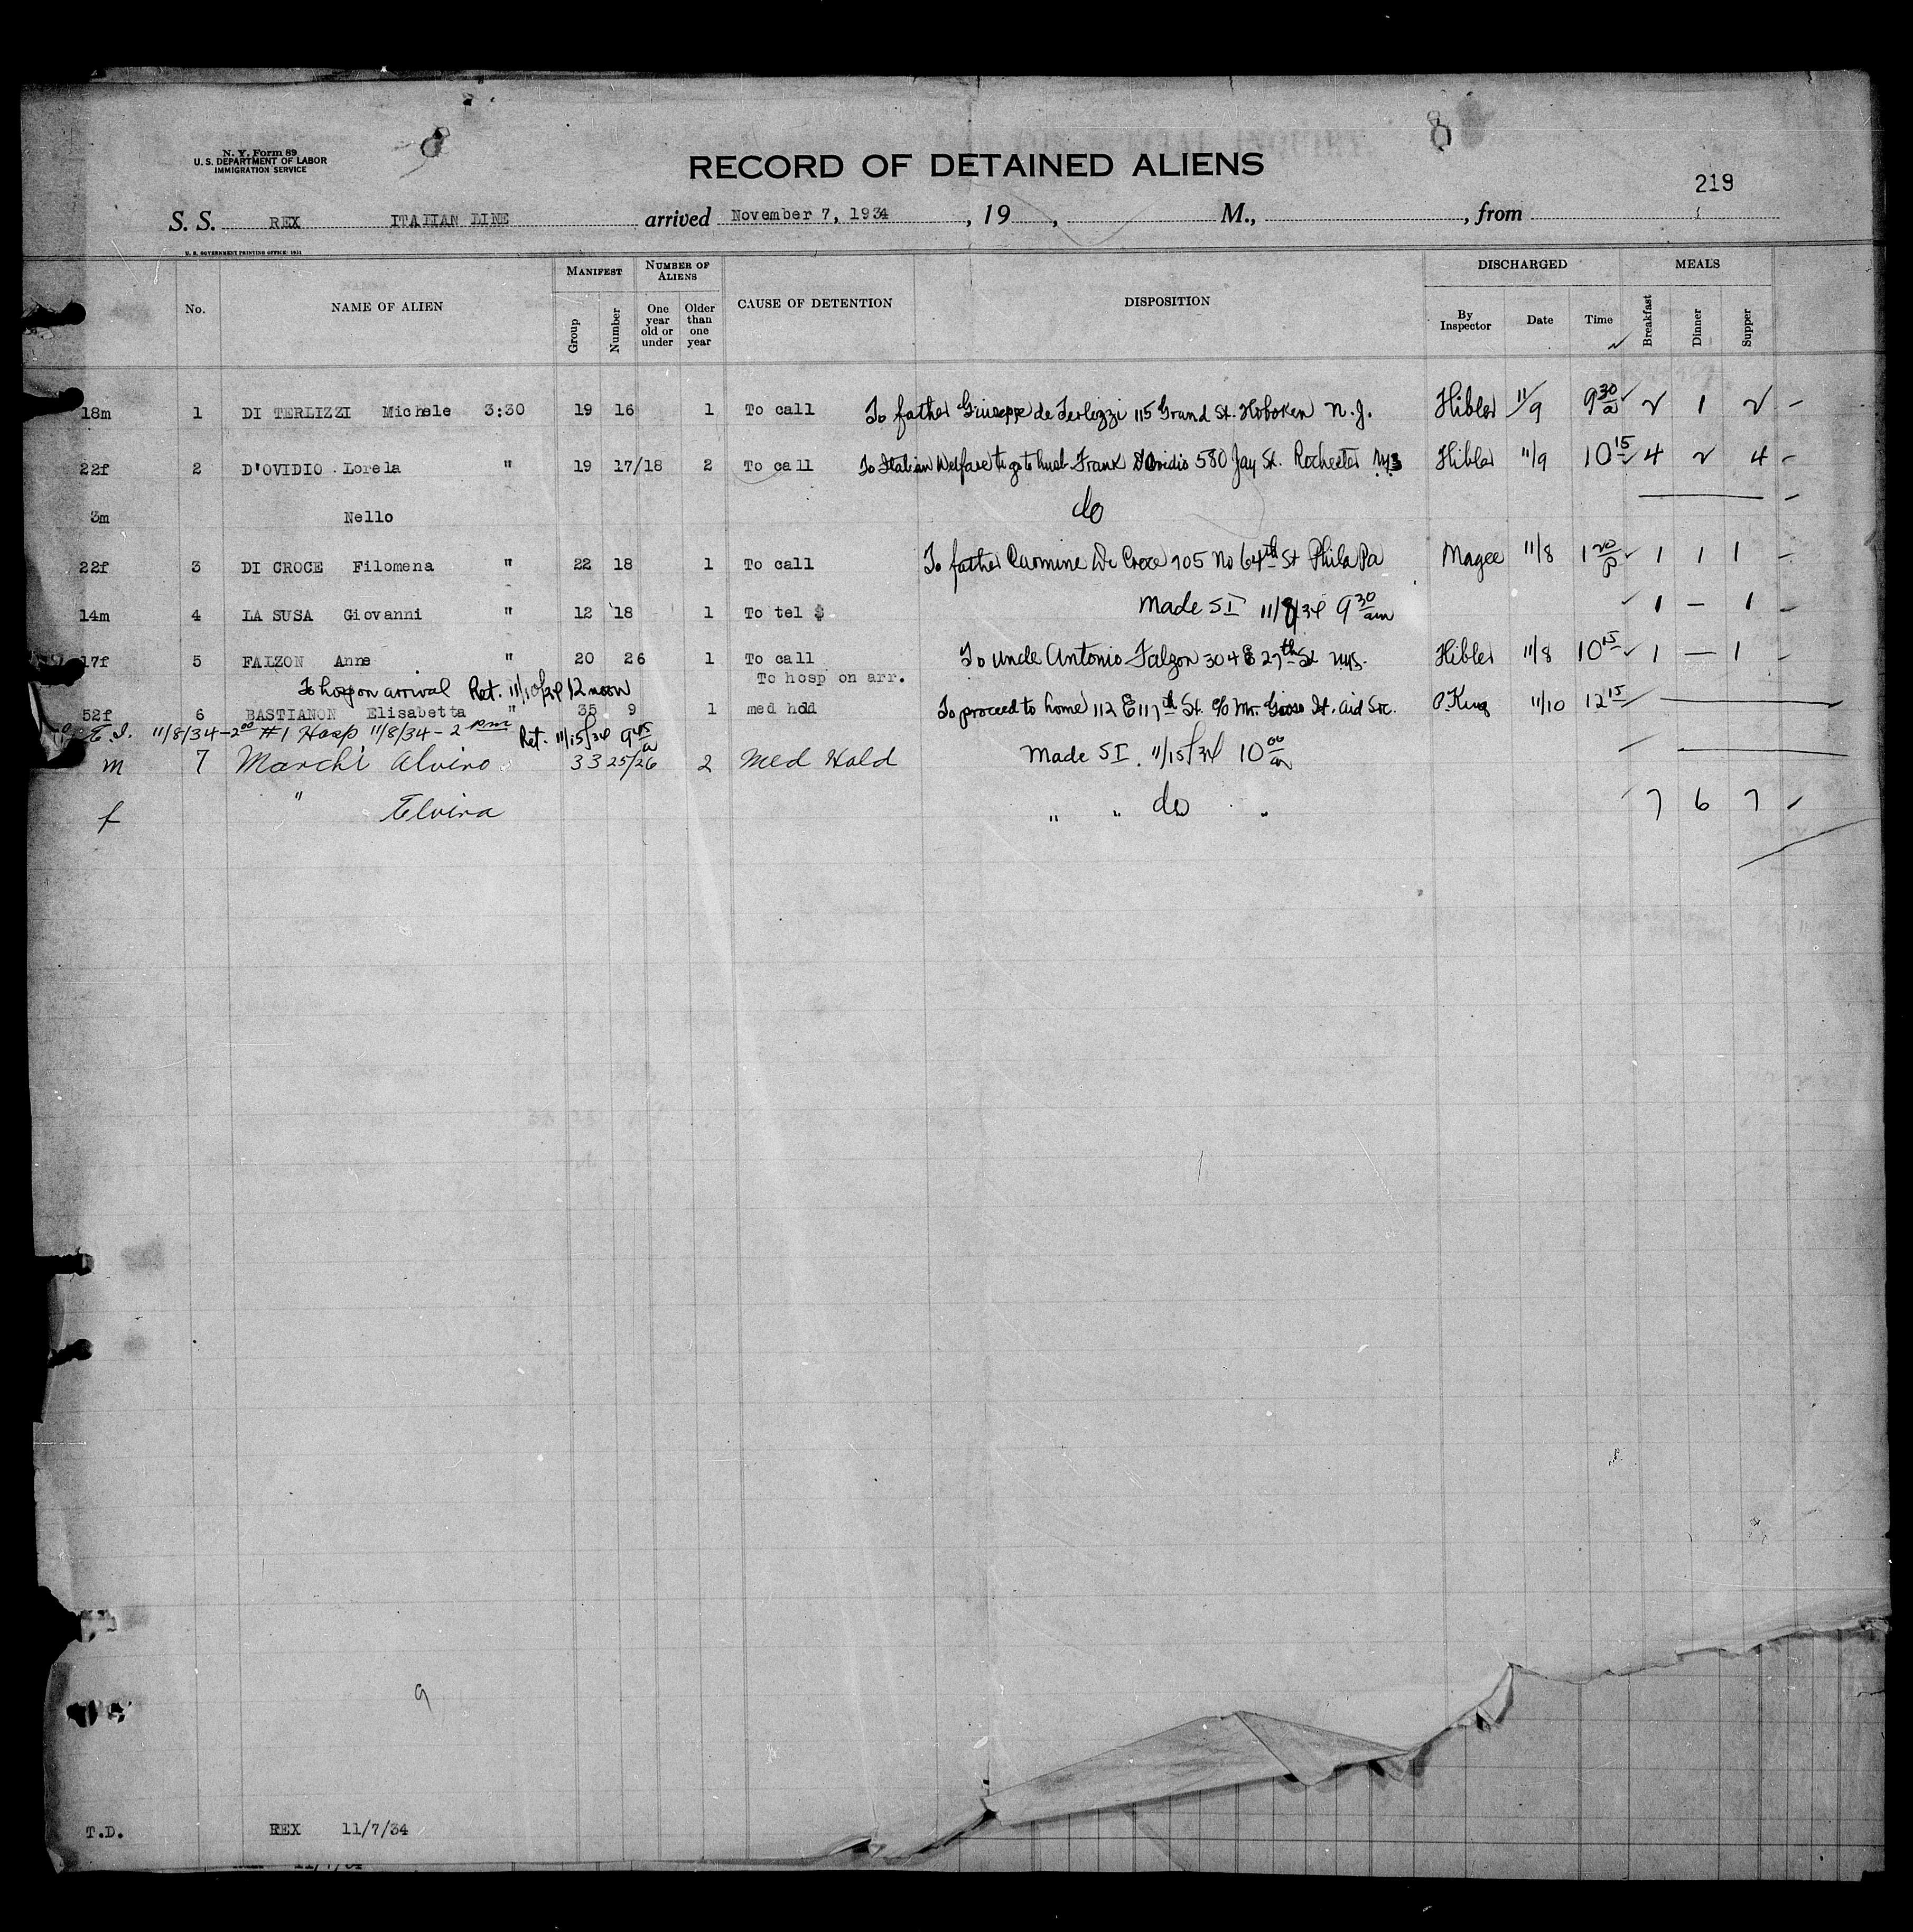 8
8
N. Y. Form 89
U. S. DEPARTMENT OF LABOR
IMMIGRATION SERVICE
RECORD OF DETAINED ALIENS
219
S. S. REX ITALIAN LINE arrived November 7, 1934, 19 , M., , from
U. S. GOVERNMENT PRINTING OFFICE: 1931
No. NAME OF ALIEN MANIFEST Group Number NUMBER OF ALIENS One year old or under Older than one year CAUSE OF DETENTION DISPOSITION DISCHARGED By Inspector Date Time MEALS Breakfast Dinner Supper
18m 1 DI TERLIZZI Michele 3:30 19 16 1 To call To father Giuseppe de Terlizzi 115 Grand St. Hoboken N.J. Hibler 11/9 9 30 a 2 1 2
22f 2 D'OVIDIO Lorela " 19 17/18 2 To call To Italian Welfare to go to husb Frank D'Ovidio 580 Jay St. Rochester Hibler 11/9 10 15 4 2 4
3m Nello do
22f 3 DI CROCE Filomena " 22 18 1 To call To father Carmine Di Croce 705 No 64th St Phila Pa Magee 11/8 1 20 P 1 1 1
14m 4 LA SUSA Giovanni " 12 18 1 To tel $ Made SI 11/8/34 9 30 am 1 — 1
17f 5 FALZON Anne " 20 26 1 To call To uncle Antonio Falzon 304 E 27th St Hibler 11/8 10 15 1 — 1
To hosp on arr.
To hosp on arrival Ret. 11/10/34 12 noon
52f 6 BASTIANON Elisabetta " 35 9 1 med hdd To proceed to home 112 E 117th St. c/o Mr. It. Aid Soc. P. King 11/10 12 15
11/8/34 - 2 00 #1 Hosp 11/8/34 - 2 pm Ret. 11/15/34 9 45 a
m 7 Marchi Alvino 33 25/26 2 Med Hold Made SI. 11/15/34 10 00 am
f " Elvira " " do " 7 6 7
9
T.D. REX 11/7/34